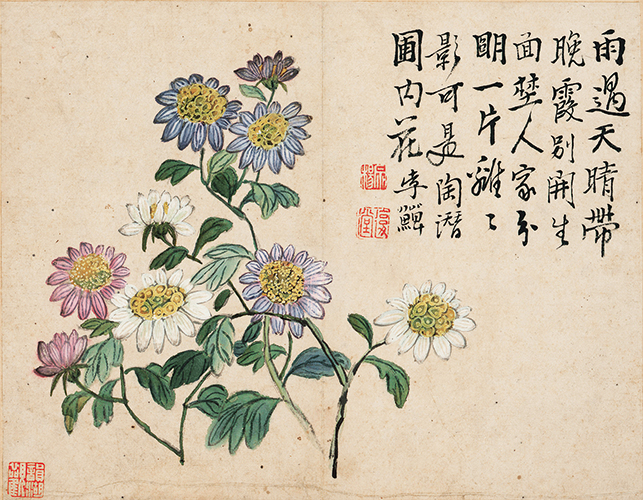 雨過天晴帶
晚霞別開生
面埜人家分
明一片離〻
影可是陶潛
圃内花李鱓